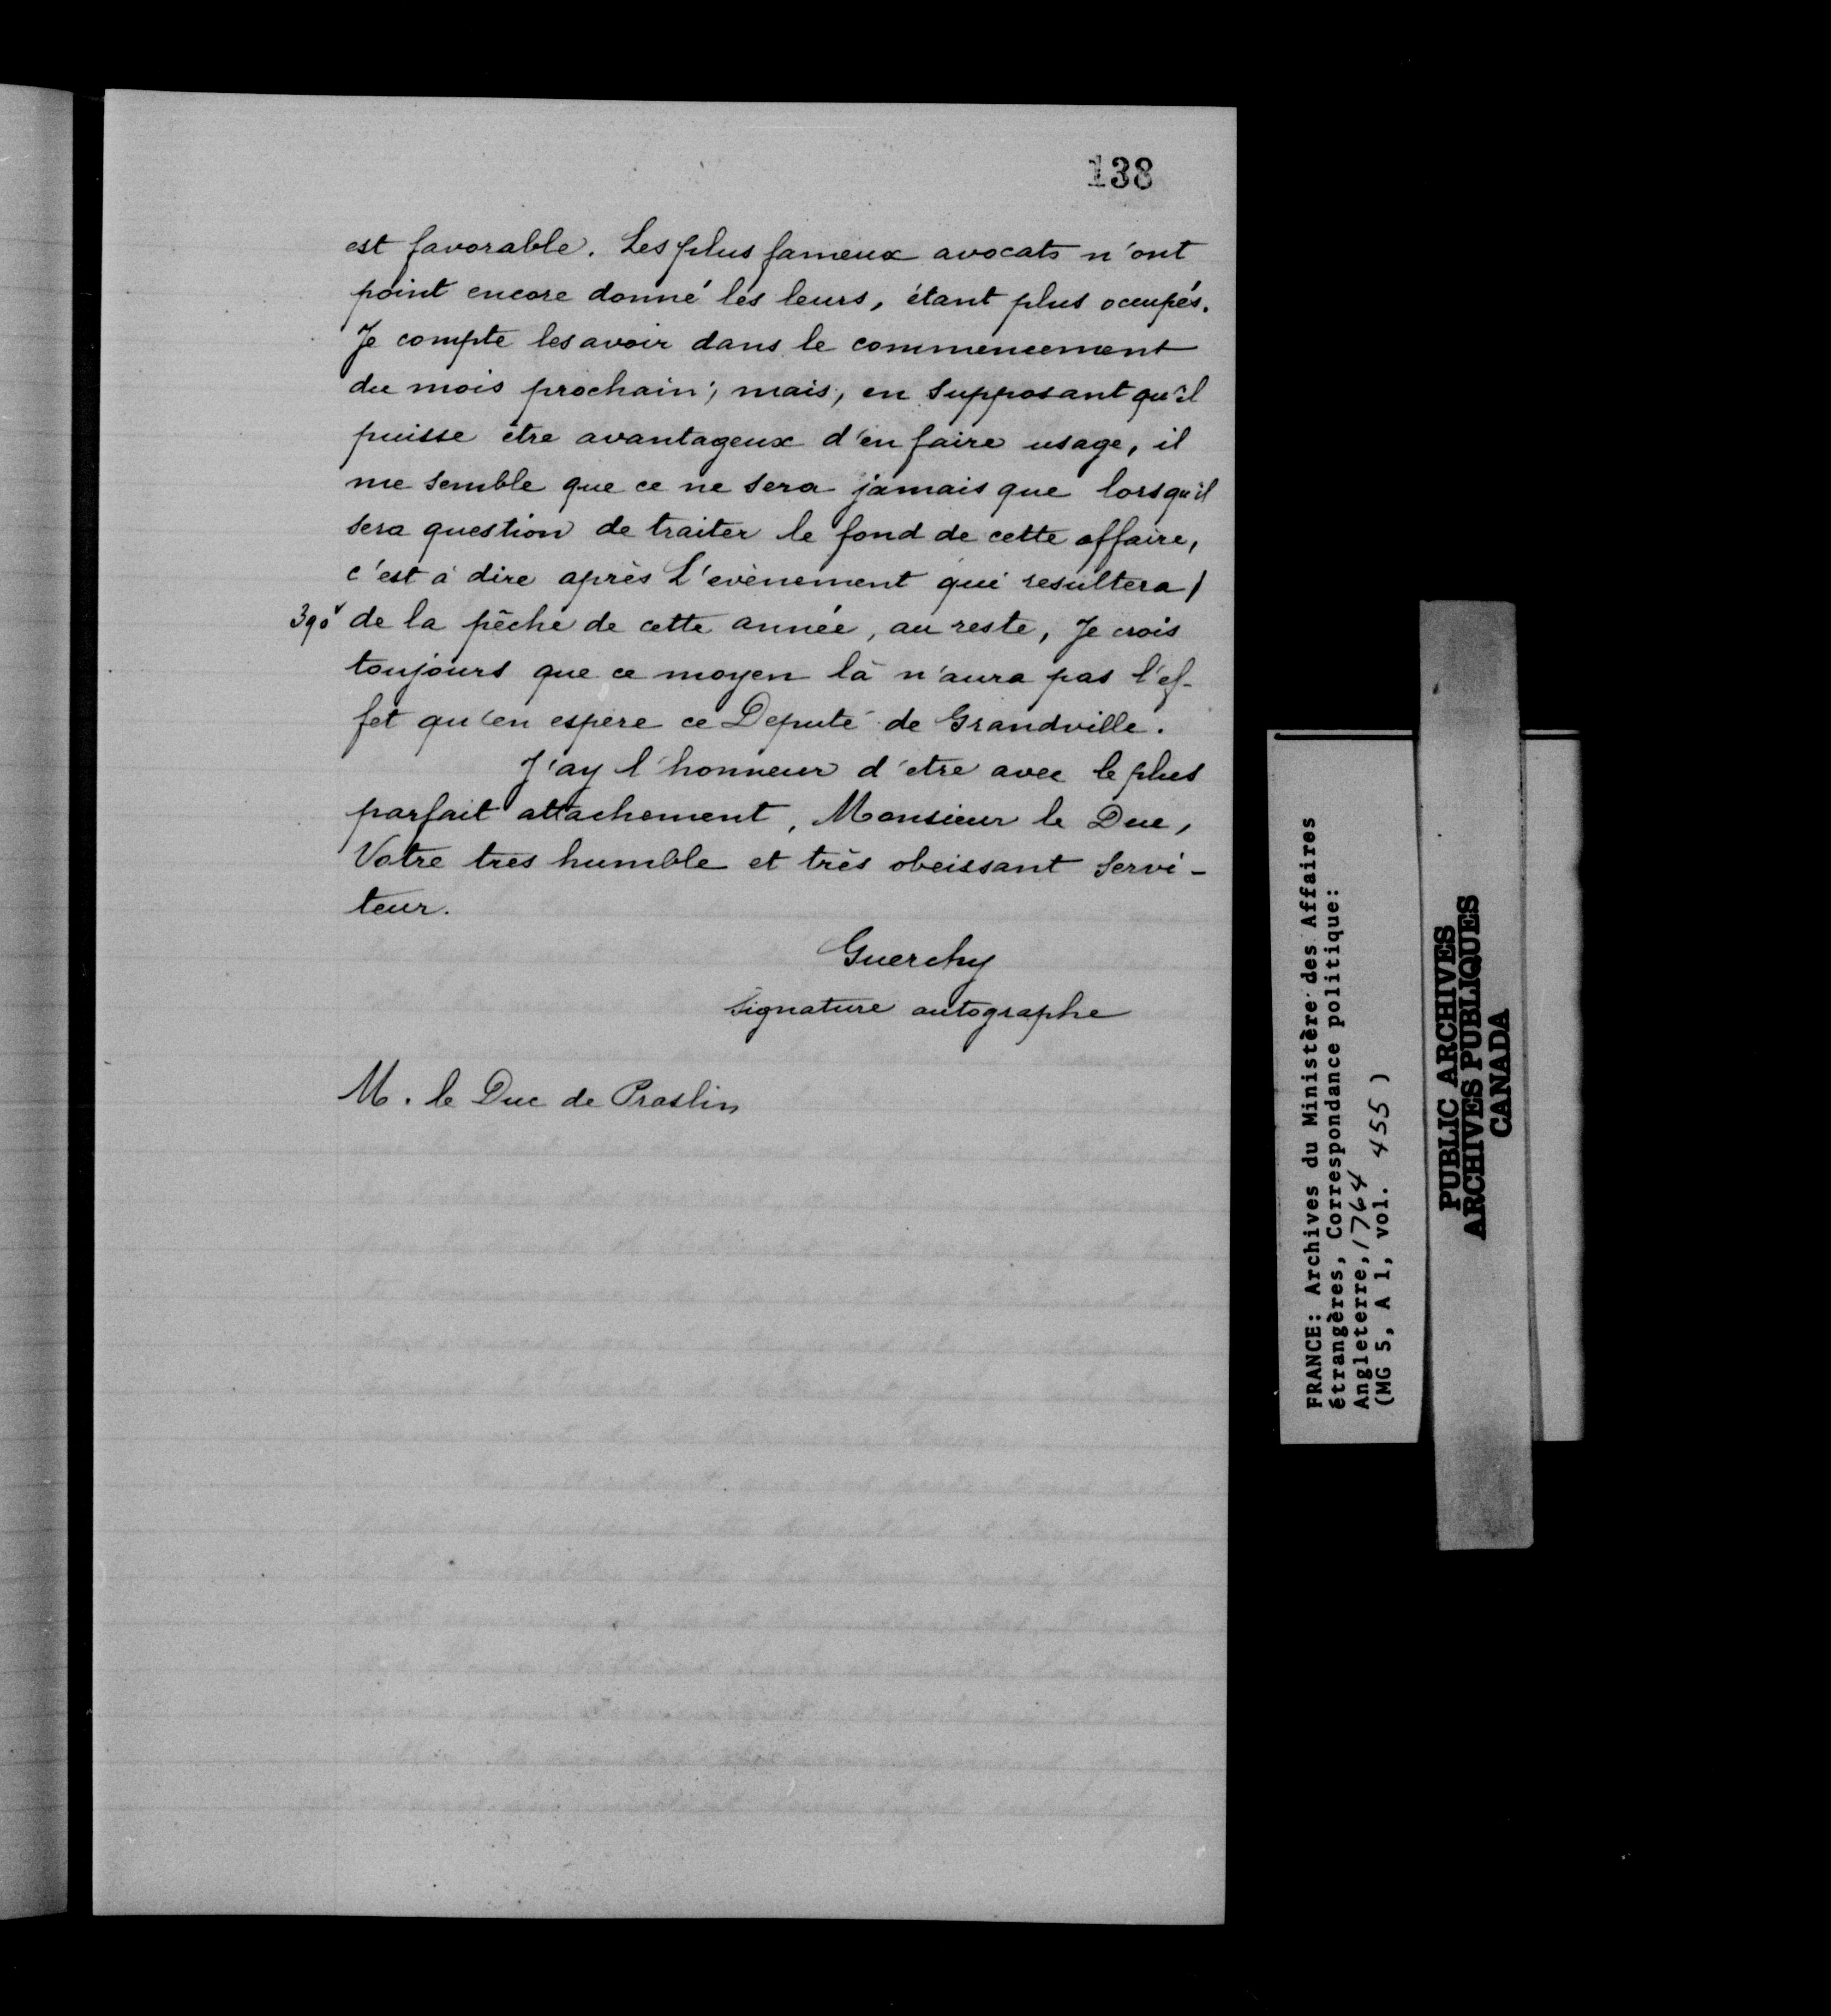 138
est favorable. Les plus fameux avocats n'ont
point encore donné les leurs, étant plus occupés.
Je compte les avoir dans le commencement
du mois prochain; mais, en supposant qu'il
puisse être avantageux d'en faire usage, il
me semble que ce ne sera jamais que lorsqu'il
sera question de traiter le fond de cette affaire,
c'est à dire après L'evènement qui resultera /
390v de la pêche de cette année, au reste, Je crois
toujours que ce moyen là n'aura pas l'ef-
fet qu'en espere ce Deputé de Grandville.
J'ay l'honneur d'etre avec le plus
parfait attachement, Monsieur le Duc,
Votre tres humble et très obeissant servi-
teur.
Guerchy
signature autographe
M. le Duc de Praslin
FRANCE: Archives du Ministère des Affaires
étrangères, Correspondance politique:
Angleterre, 1764
(MG 5, A 1, vol. 455)
PUBLIC ARCHIVES
ARCHIVES PUBLIQUES
CANADA